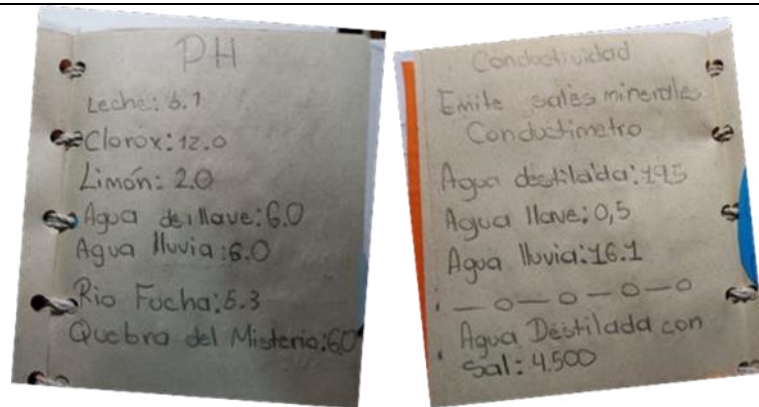 PH
Leche: 6.1
Clorox: 12.0
Limón: 2.0
Agua de llave: 6.0
Agua lluvia: 6.0
Rio Fucha: 5.3
Quebra del Misterio: 6.0
Conductividad
Emite sales minerales
Conductimetro
Agua destilada: 19.5
Agua llave: 0,5
Agua lluvia: 16.1
Agua Destilada con
Sal: 4.500